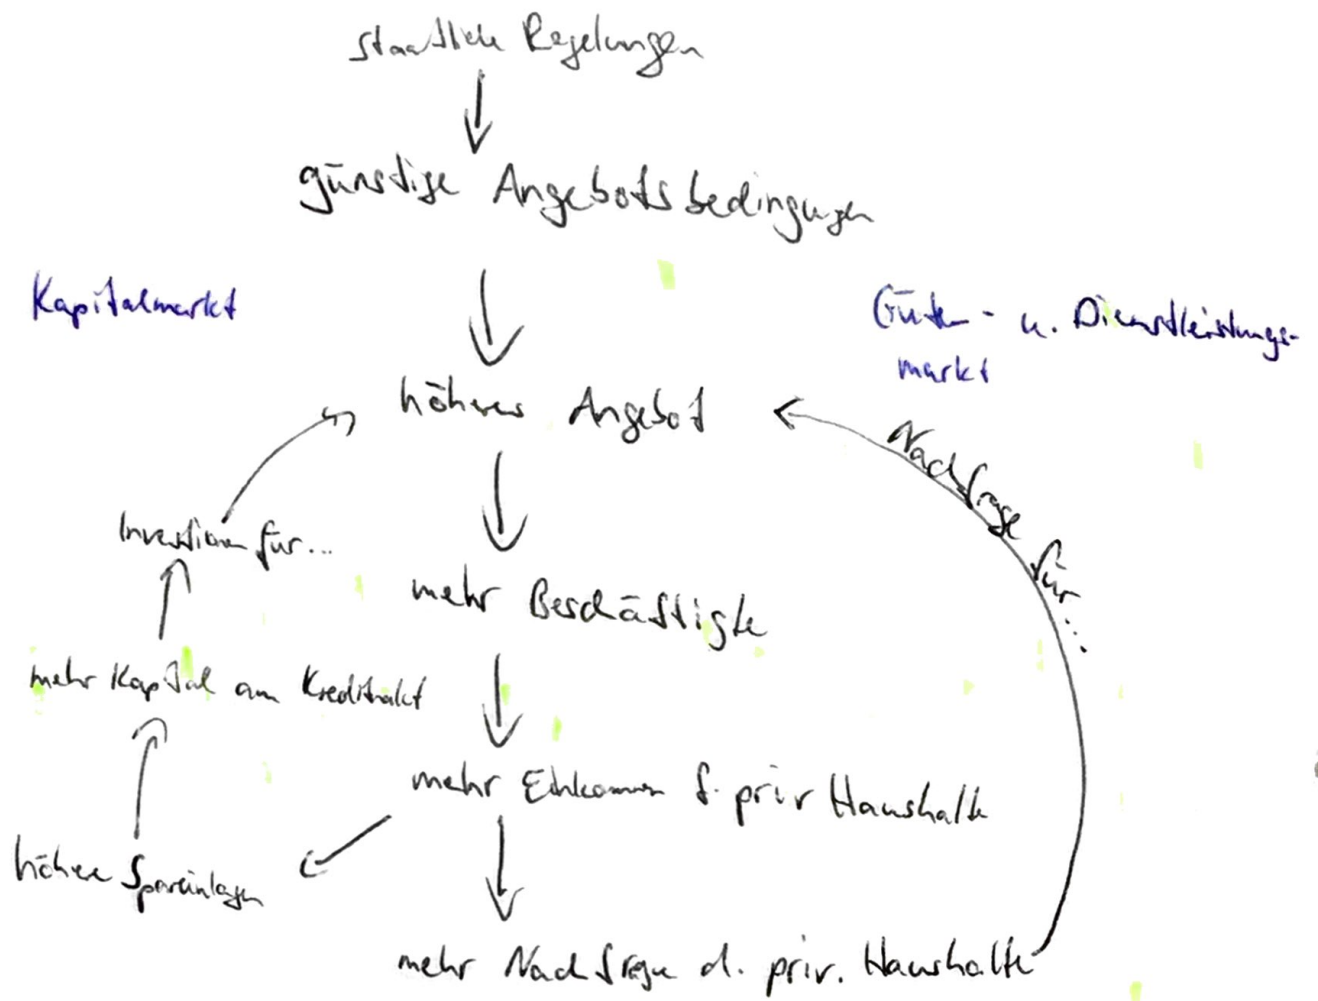 staatliche Regelungen
günstige Angebotsbedingungen
Kapitalmarkt
Güter- u. Dienstleistungs-
markt
höheres Angebot
Nachfrage für...
Investition für...
mehr Beschäftigte
mehr Kapital am Kreditmarkt
mehr Einkommen f. priv Haushalte
höhere Spareinlagen
mehr Nachfrage d. priv. Haushalte